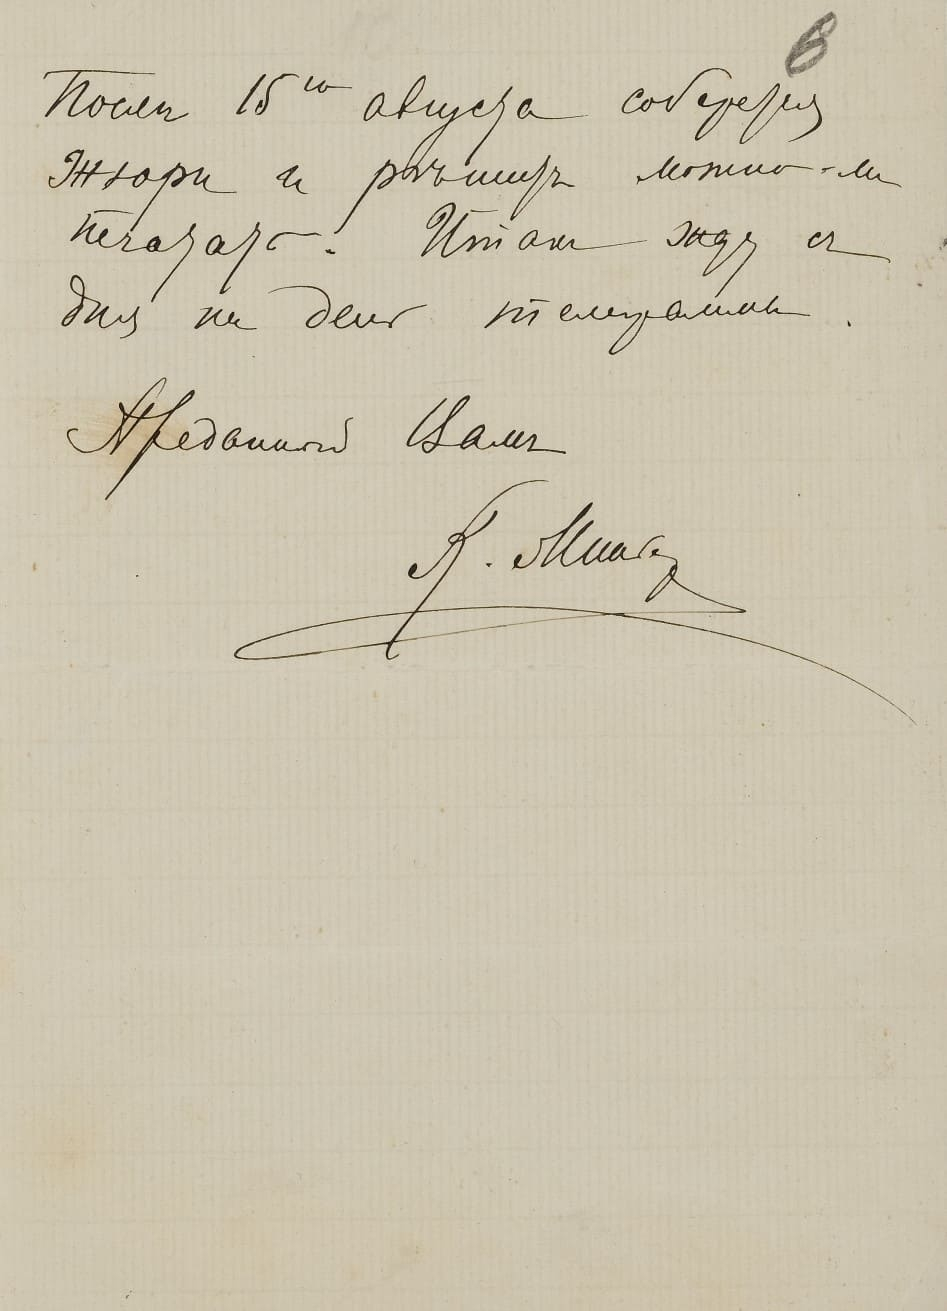 6
Послѣ 15го августа соберется
Жюри и рѣшитъ можно-ли
печатать. Итакъ жду со
дня на день телеграммы.
Преданный Вамъ
К.